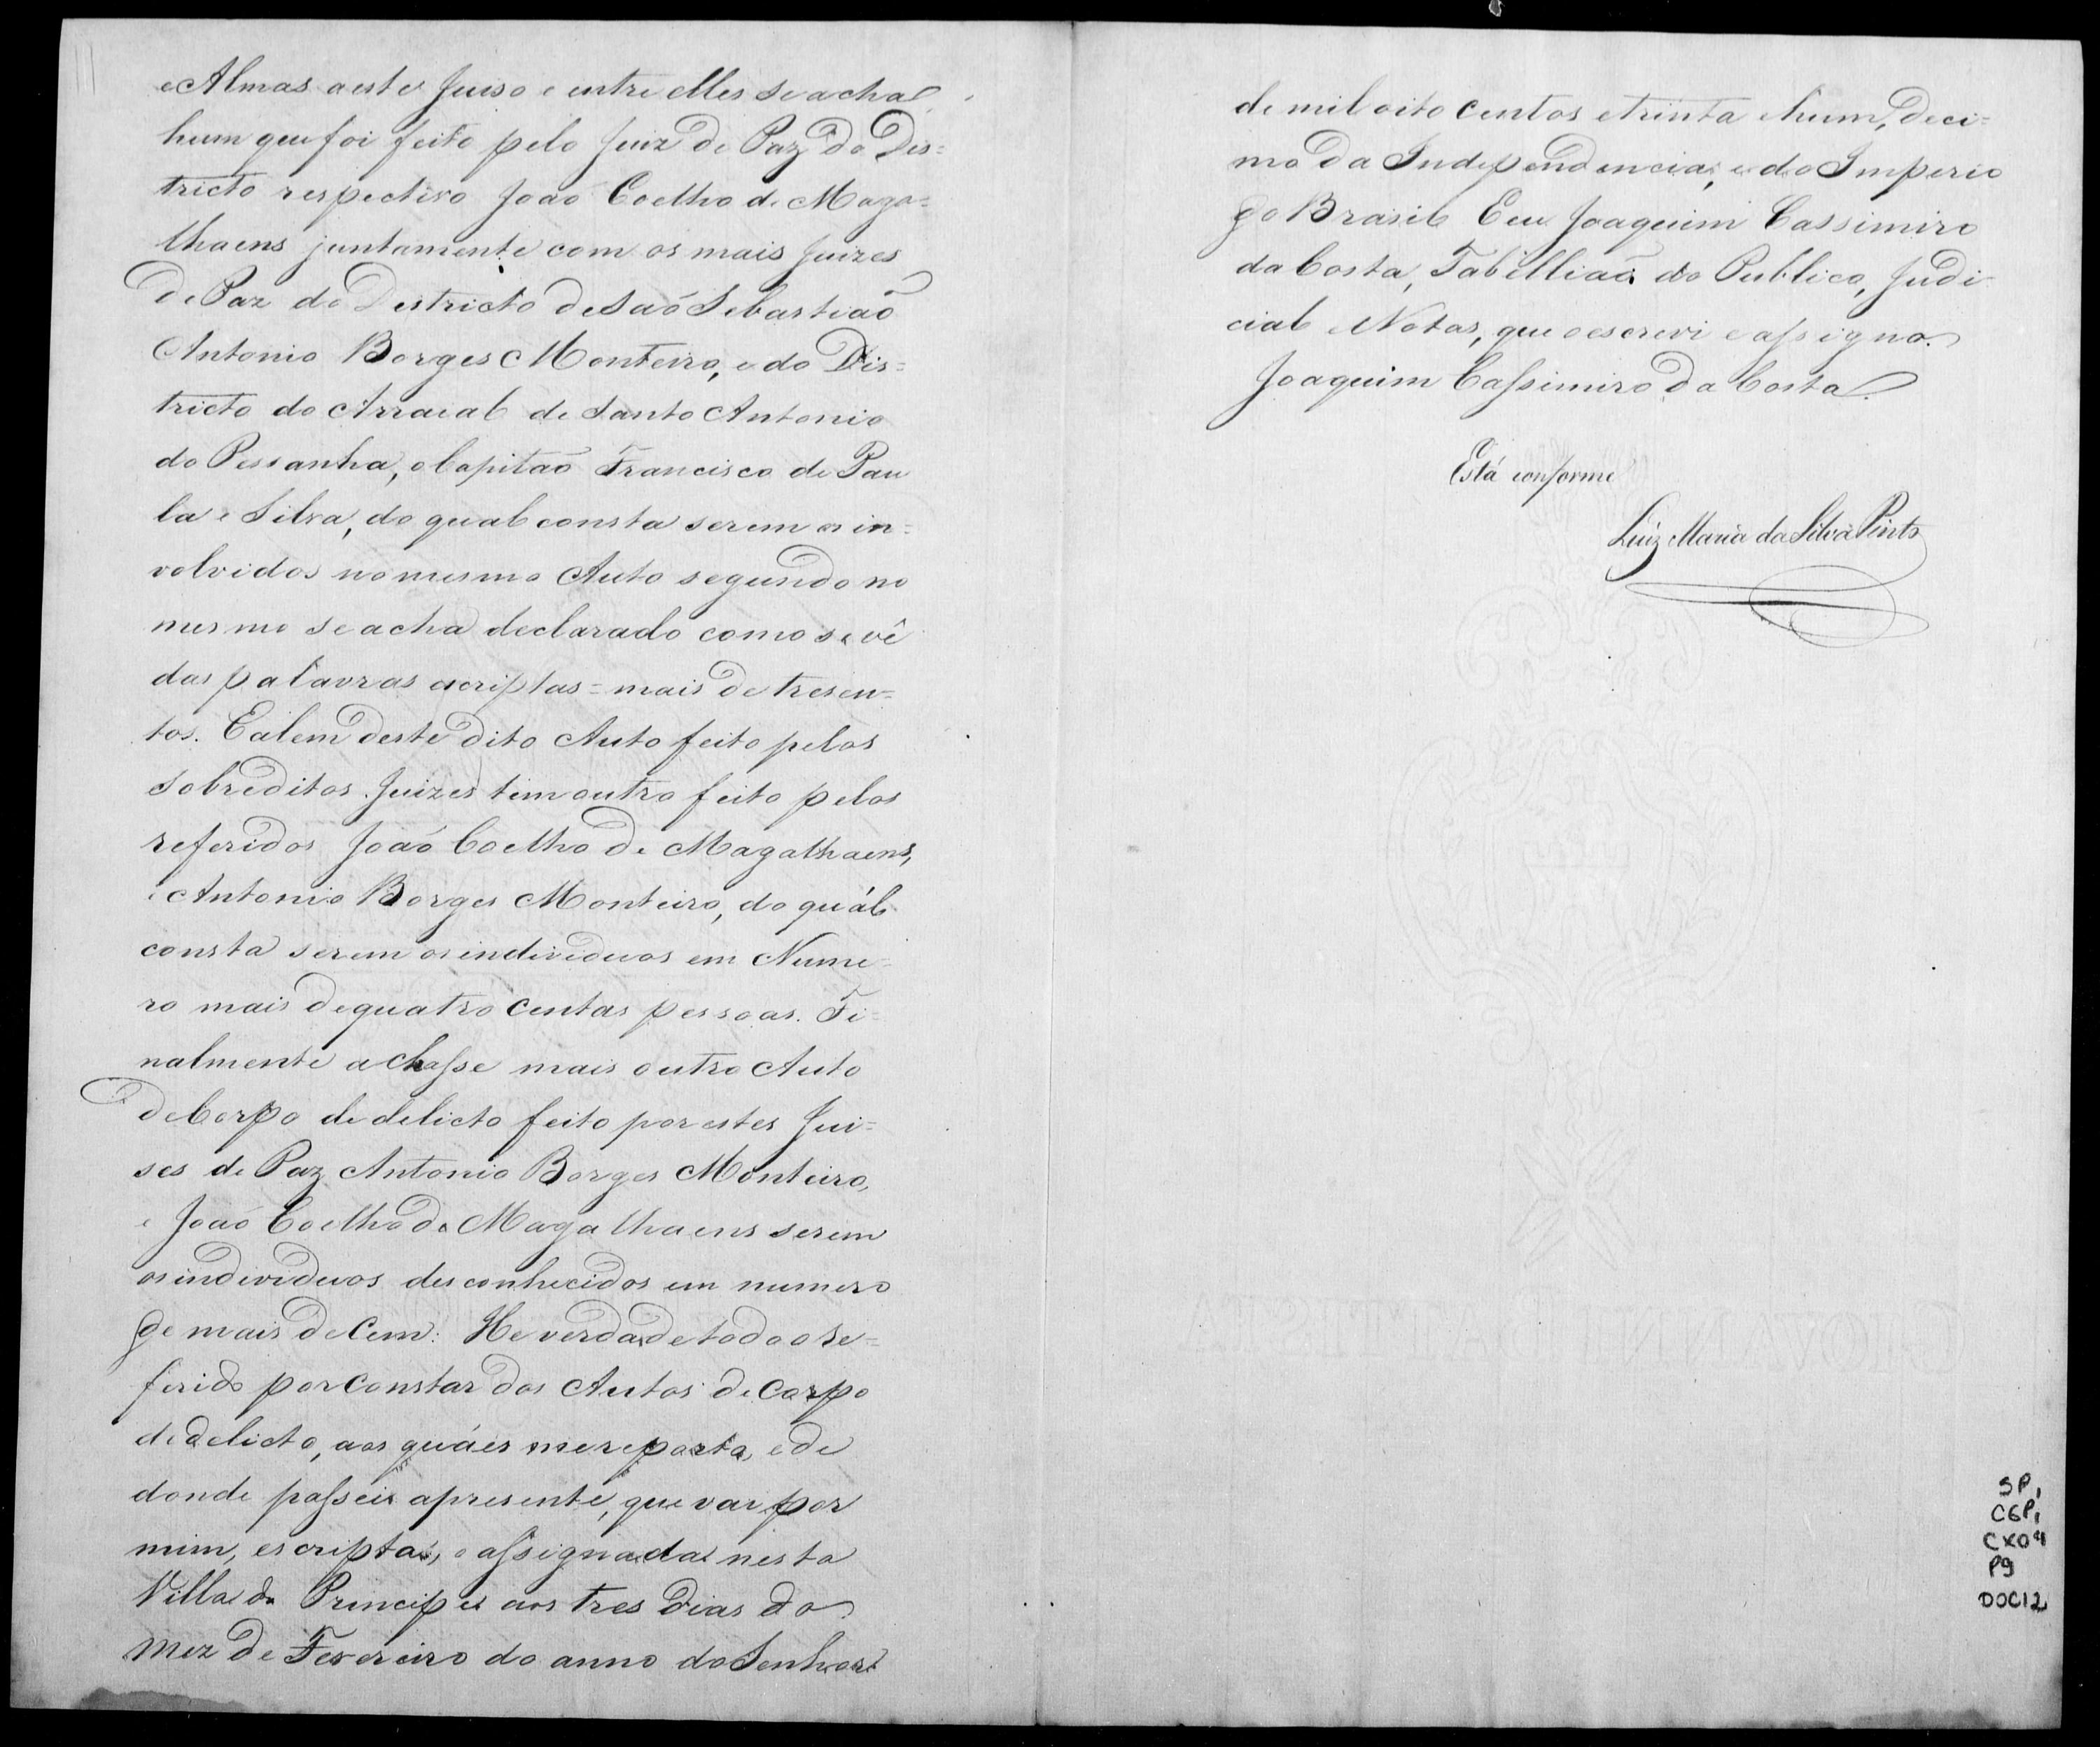 e Almas a este Juiso e entre elles se acha
hum que foi feito pelo Juiz de Paz do Des=
tricto respectivo João Coelho de Maga=
lhaens juntamente com os mais Juizes
de Paz do Destricto de São Sebastião
Antonio Borges Monteiro, e do Dis=
tricto do Arraeal de Santo Antonio
do Pessanha, o Capitão Francisco de Pau
la e Silva, do qual consta serem os in=
volvidos no mesmo Auto segundo no
mesmo se acha declarado como se vê
das palavras acriptas = mais de tresen=
tos. E alem deste dito Auto feito pelos
sobreditos Juizes tem outro feito pelos
referidos João Coelho de Magalhaens,
e Antonio Borges Monteiro, do quál
consta serem os individuos em Nume=
ro mais de quatro centas pessoas. Fi=
nalmente achasse mais outro Auto
de Corpo de delicto feito por estes Jui=
ses de Paz Antonio Borges Monteiro,
e João Coelho de Magalhaens serem
os individuos desconhecidos em numero
de mais de Cem: He verdade todo o re=
ferido por Constar dos Autos de Corpo
de delicto, aos quáes me reporto, e de
donde passei a presente, que vai por
mim, escripta, e assignada nesta
Villa do Principe aos tres dias do
mez de Fevereiro do anno do Senhor
de mil oito centos e trinta e hum, deci=
mo da Independencia, e do Imperio
do Brasil Eeu Joaquim Cassimiro
da Costa, Tabellião do Publico, Judi
cial e Notas, que o escrevi e assigno.
Joaquim Cassimiro da Costa
Está conforme
Luiz Maria da Silva Pinto
GIOVANNI
SP,
CGP,
CX04
P9
DOC12